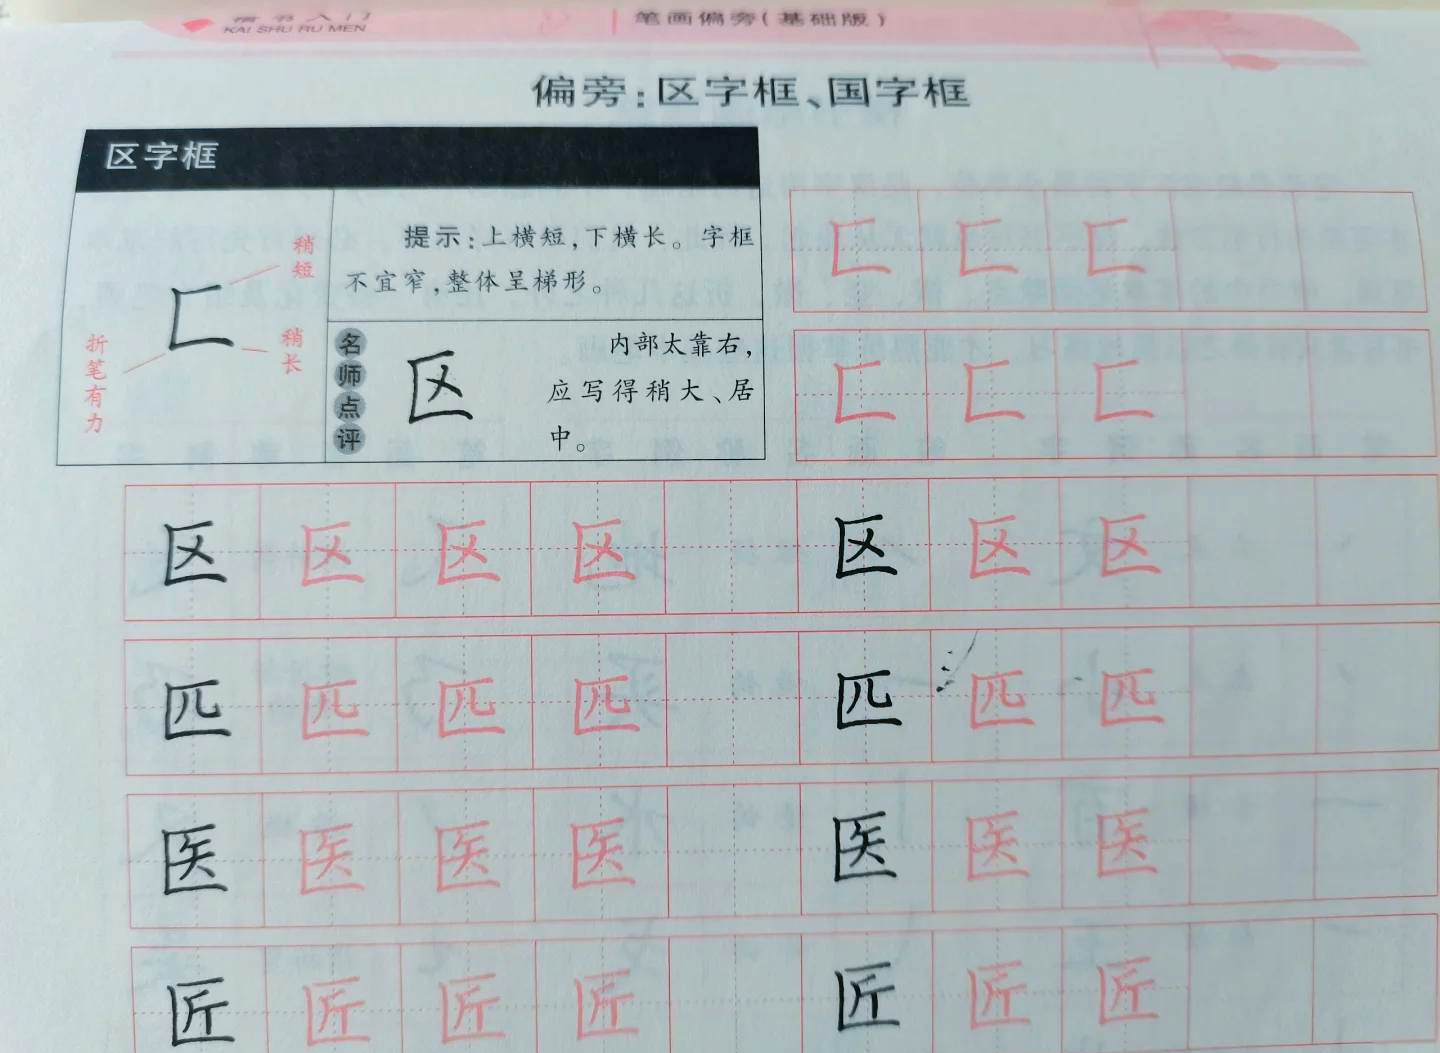 楷书入门
KAI SHU RU MEN
笔画偏旁(基础版)
偏旁:区字框、国字框
区字框
稍短
稍长
折笔有力
匚
提示:上横短,下横长。字框
不宜窄,整体呈梯形。
名师点评
区
内部太靠右,
应写得稍大、居
中。
匚 匚 匚
匚 匚 匚
区 区 区 区 区 区 区
匹 匹 匹 匹 匹 匹 匹
医 医 医 医 医 医 医
匠 匠 匠 匠 匠 匠 匠